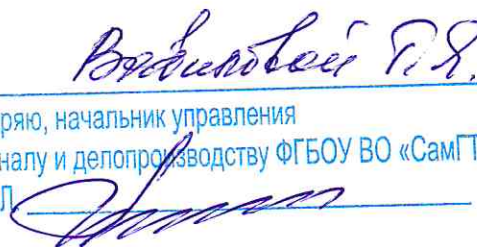 Вавиловой Т.Я.
ряю, начальник управления
налу и делопроизводству ФГБОУ ВО «СамГТ
Л